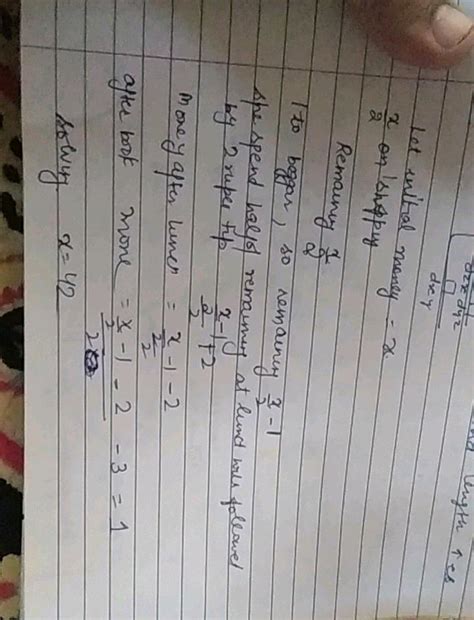 dxy
length
Let initial money = x
x/2 on shoppy
Remaining x/2
1 to beggar, so remaining x/2 - 1
She spend half of remaining at lunch followed
by 2 rupee tip x/2 - 1 + 2
money after lunch = x/2 - 1 - 2
after book mone = x/2 - 1 - 2 - 3 = 1
2
solving x = 42